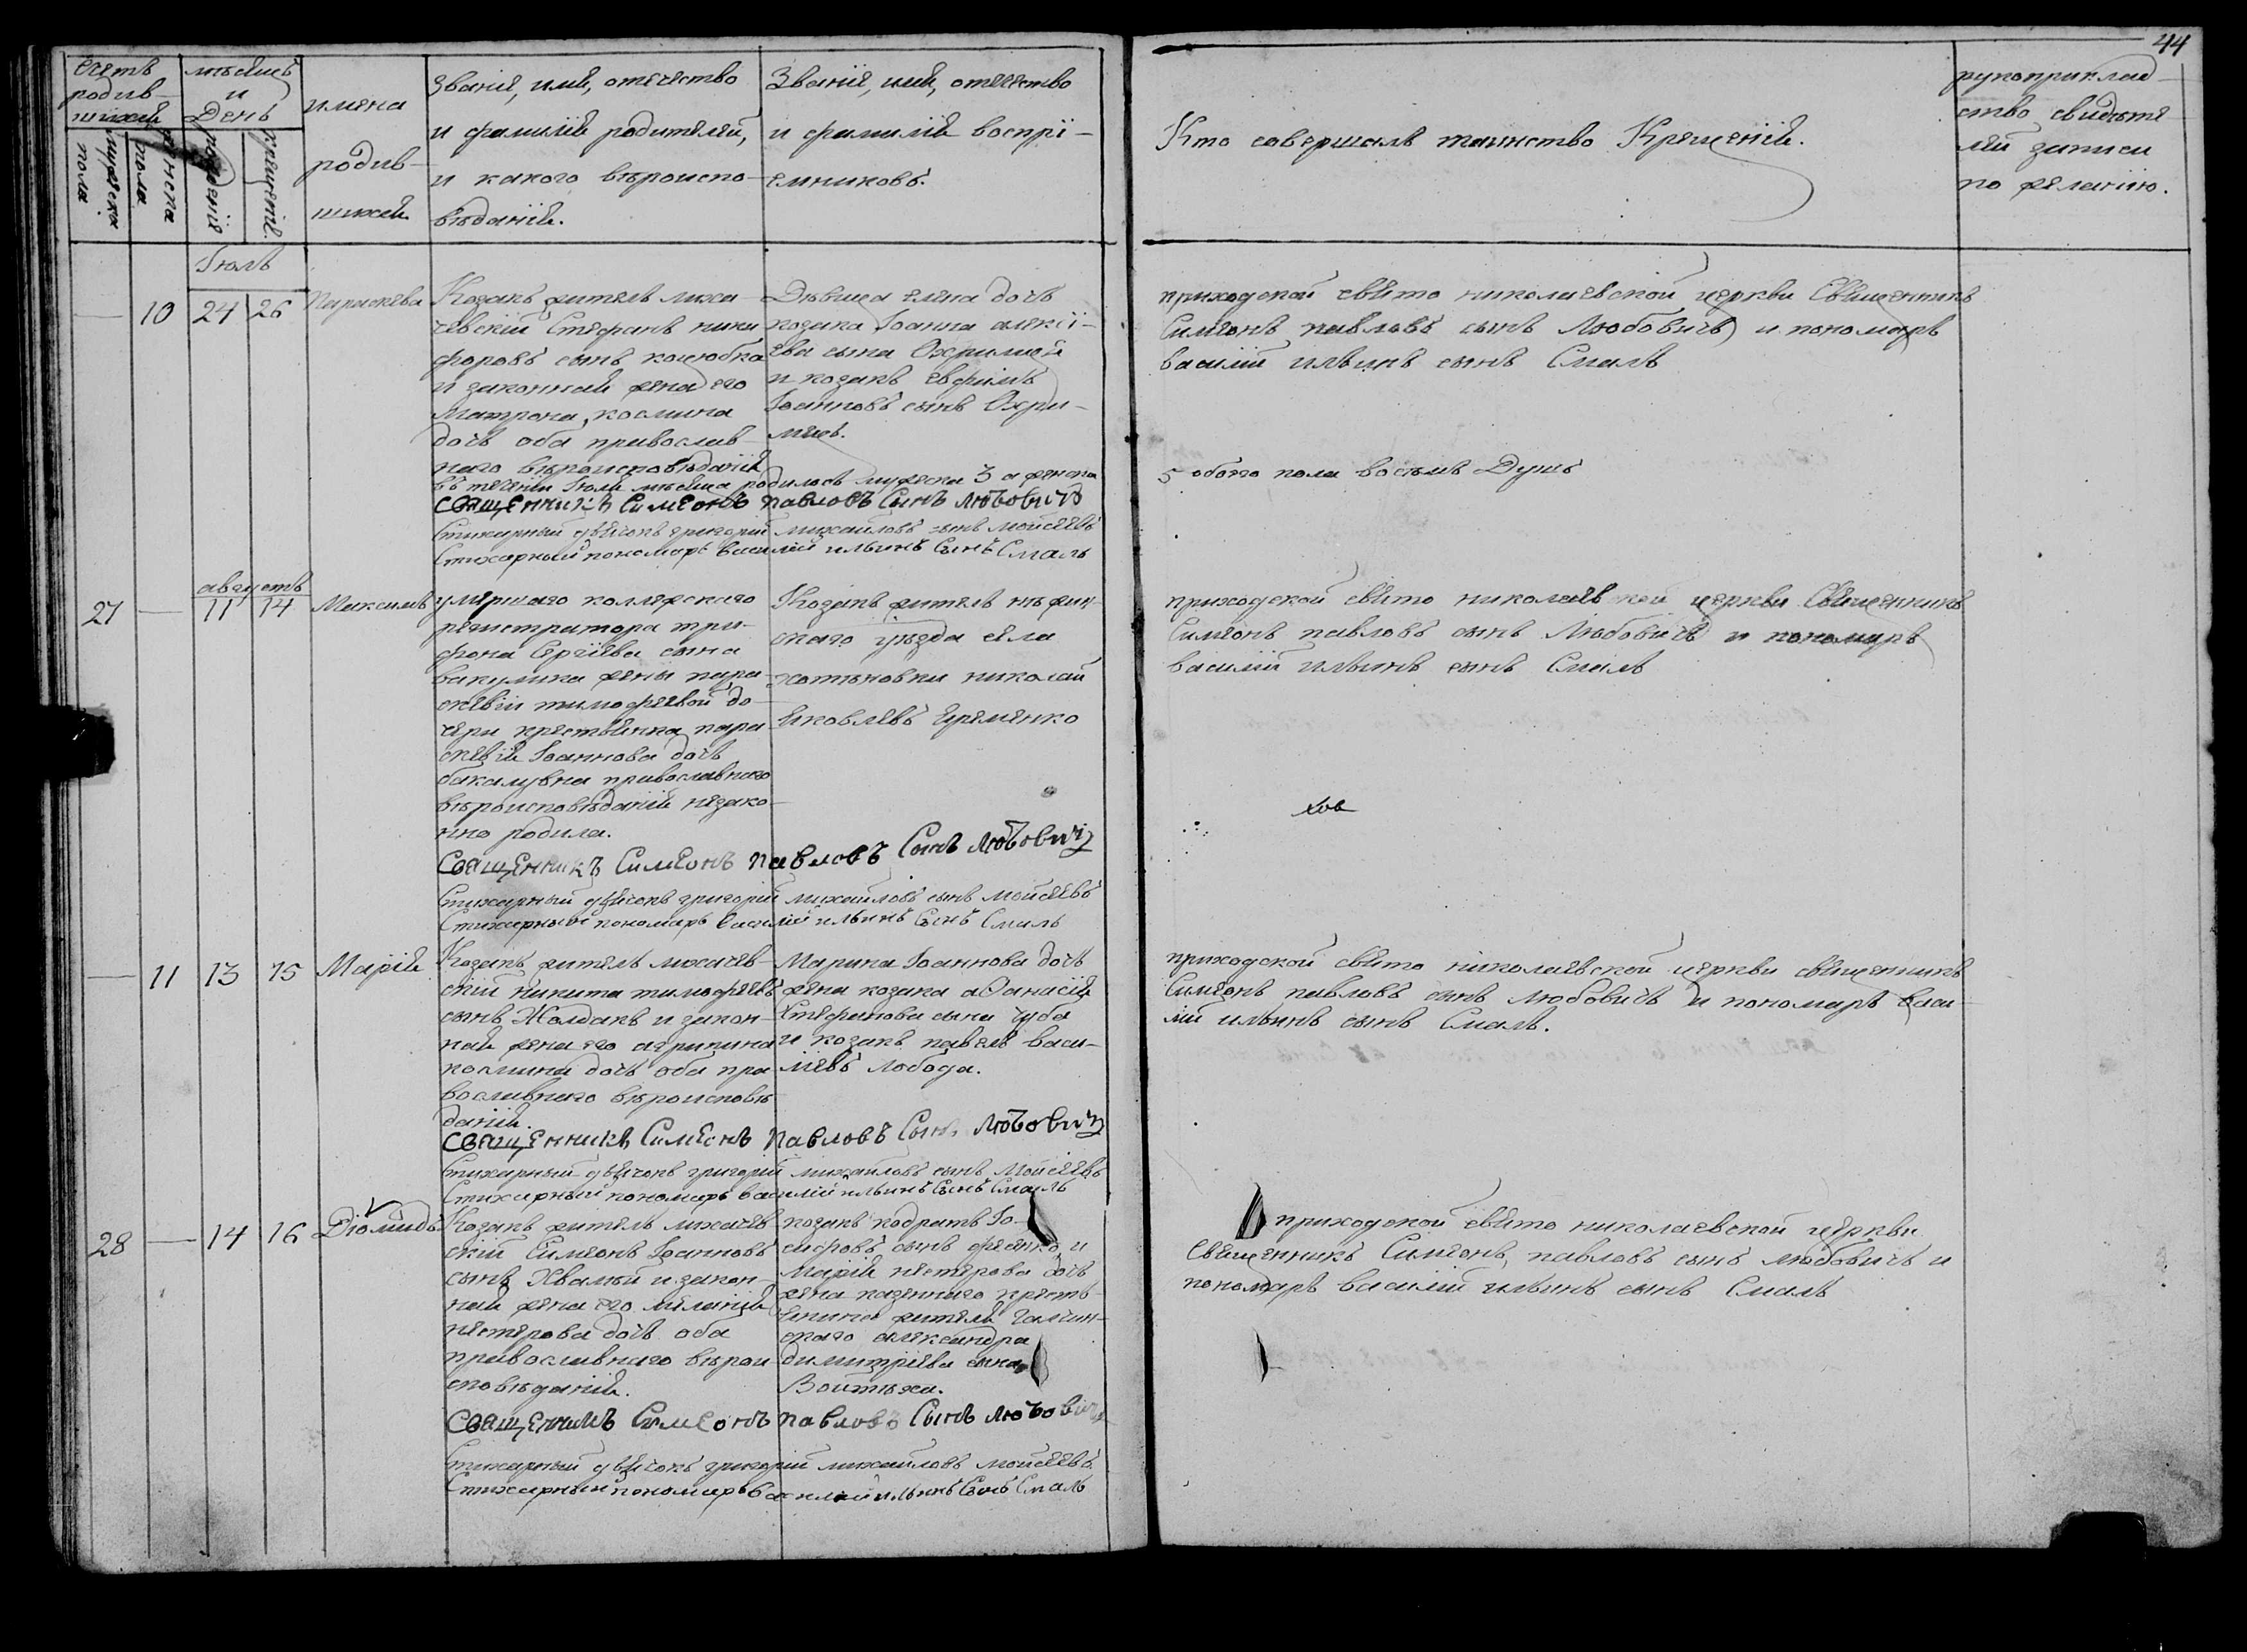 44
Счетъ родив-шихся
мужеска пола.
женска пола
мѣсяцъ и День
рожденія
крещенія.
имена родив-шихся
званіе, имя, отечество
и фамилія родителей,
и какого вѣроиспо-
вѣданія.
Званіе, имя, отечество
и фамилія воспрі-
емниковъ.
Кто совершалъ таинство Крещенія.
рукоприклад-
ство свидѣте
лей записи
по желанію.
Іюль
— 10 24 26 Параскева
Козакъ житель лиха-
чевскій Стефанъ ники
форовъ сынъ коцюбка
и законная жена его
Матрона, космина
дочь оба православ-
наго вѣроисповѣданія
Дѣвица елена дочь
козака Іоанна алексі-
ева сына Охримця
и козакъ евфимъ
Іоанновъ сынъ Охри-
мецъ.
приходской свято николаевской церкви Священникъ
Симеонъ павловъ сынъ Любовичъ и пономарь
василій ильинъ сынъ Смаль
въ теченіи Іюля мѣсяца родилось мужеска 3 а женска
5 обоего пола восемь Душъ
Священникъ Симеонъ павловъ Сынъ Любовичъ
Стихарный дьячокъ григорій михаиловъ сынъ Мойсеевъ
Стихарный пономарь василій ильинъ Сынъ Смаль
августъ
27 — 11 14 Максимъ
умершаго коллежскаго
регистратора три-
фона Сергіева сына
вакулика жены пара-
скевіи тимофеевой до-
чери крестьянка пара
скевія Іоаннова дочь
бакалувна православнаго
вѣроисповѣданія незако-
нно родила.
Козакъ житель нѣжин-
скаго уѣзда села
хотѣновки николай
Яковлевъ Яременко
приходской свято николаевской церкви Священникъ
Симеонъ павловъ сынъ Любовичъ и пономарь
василій ильинъ сынъ Смаль
Священникъ Симеонъ павловъ Сынъ Любовичъ
Стихарный дьячокъ григорій михаиловъ сынъ Мойсеевъ
Стихарный пономарь василій ильинъ Сынъ Смаль
— 11 13 15 Марія
Козакъ житель лихачев-
скій Никита тимофеевъ
сынъ Жолдакъ и закон-
ная жена его агрипина
космина дочь оба пра
вославнаго вѣроисповѣ
данія.
Марина Іоаннова дочь
жена козака аѳанасія
Стефанова сына чуба
и козакъ павелъ васи-
ліевъ лобода.
приходской свято николаевской церкви священникъ
Симеонъ павловъ сынъ любовичъ и пономарь васи-
лій ильинъ сынъ Смаль.
Священникъ Симеонъ павловъ Сынъ Любовичъ
Стихарный дьячокъ григорій михаиловъ сынъ Мойсеевъ
Стихарный пономарь василій ильинъ Сынъ Смаль
28 — 14 16 Діомидъ
Козакъ житель лихачев
скій Симеонъ Іоанновъ
сынъ Хвамый и закон-
ная жена его меланія
нестерова дочь оба
православнаго вѣрои-
сповѣданія.
козакъ кодратъ Іо-
сифовъ сынъ и
Марія нестерова дочь
жена казеннаго кресть
янина житель
скаго александра
димитріева сына
приходской свято николаевской церкви
Священникъ Симеонъ, павловъ сынъ любовичъ и
пономарь василій ильинъ сынъ Смаль
Священникъ Симеонъ павловъ Сынъ Любовичъ
Стихарный дьячокъ григорій михаиловъ мойсеевъ
Стихарный пономарь василій ильинъ Сынъ Смаль